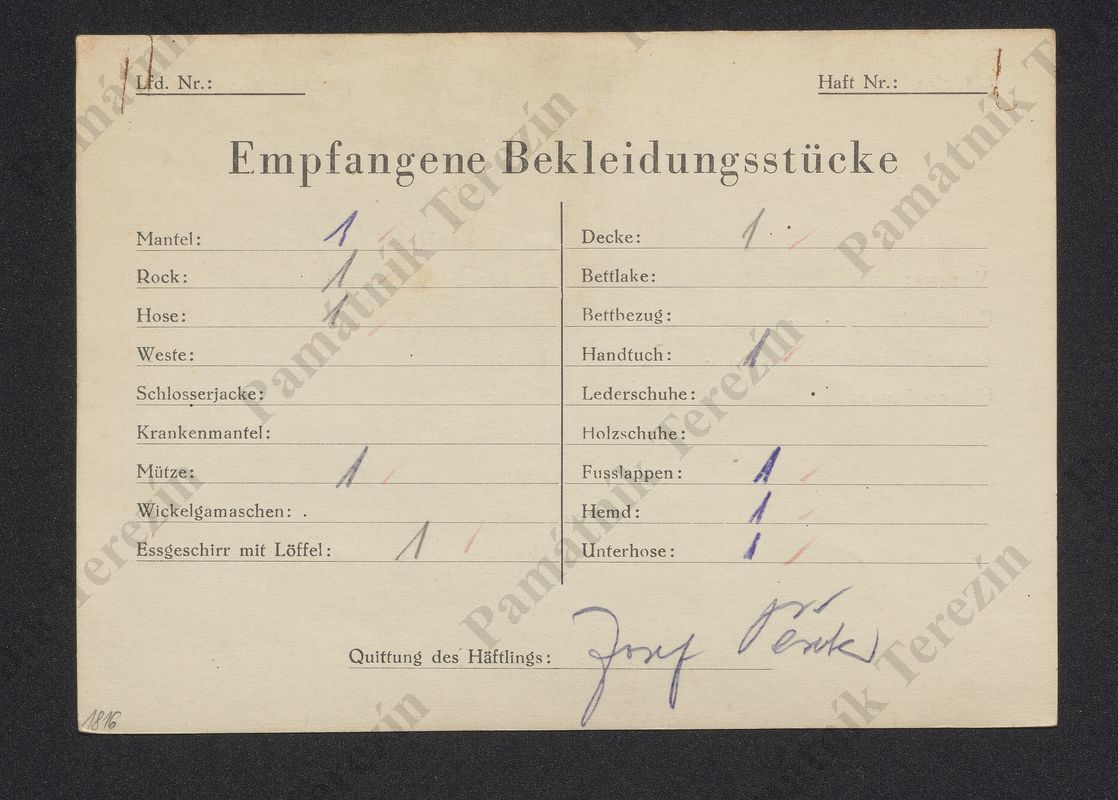 Lfd. Nr.:
Haft Nr.:
Empfangene Bekleidungsstücke
Mantel: 1
Rock: 1
Hose: 1
Weste:
Schlosserjacke:
Krankenmantel:
Mütze: 1
Wickelgamaschen:
Essgeschirr mit Löffel: 1
Decke: 1
Bettlake:
Bettbezug:
Handtuch: 1
Lederschuhe:
Holzschuhe:
Fusslappen: 1
Hemd: 1
Unterhose: 1
Quittung des Häftlings: Josef
1816
Památník Terezín